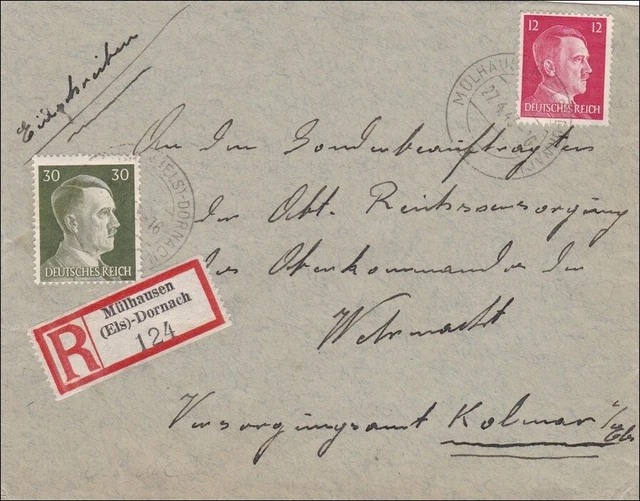 Einschreiben
12 12
DEUTSCHES REICH
MÜLHAUS
27.4.
An den Sonderbeauftragten
30 30
DEUTSCHES REICH
(ELS)-DORNACH
der Abt. Reichsversorgung
des Oberkommandos der
Wehrmacht
R
Mülhausen
(Els)-Dornach
124
Versorgungsamt Kolmar i/Els